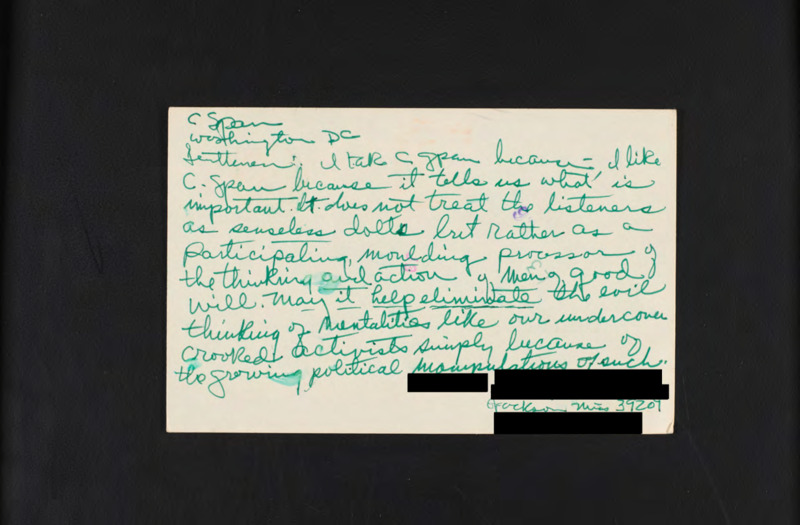 C Span
Washington DC
Gentlemen: I take C Span because – I like
C. Span because it tells us what is
important. It does not treat the listeners
as senseless dolts but rather as a
participating, moulding processor of
the thinking and action of men of good
will. May it help eliminate the evil
thinking of mentalities like our undercover
crooked activists simply because of
the growing political manipulations of such.
Jackson Miss 39201